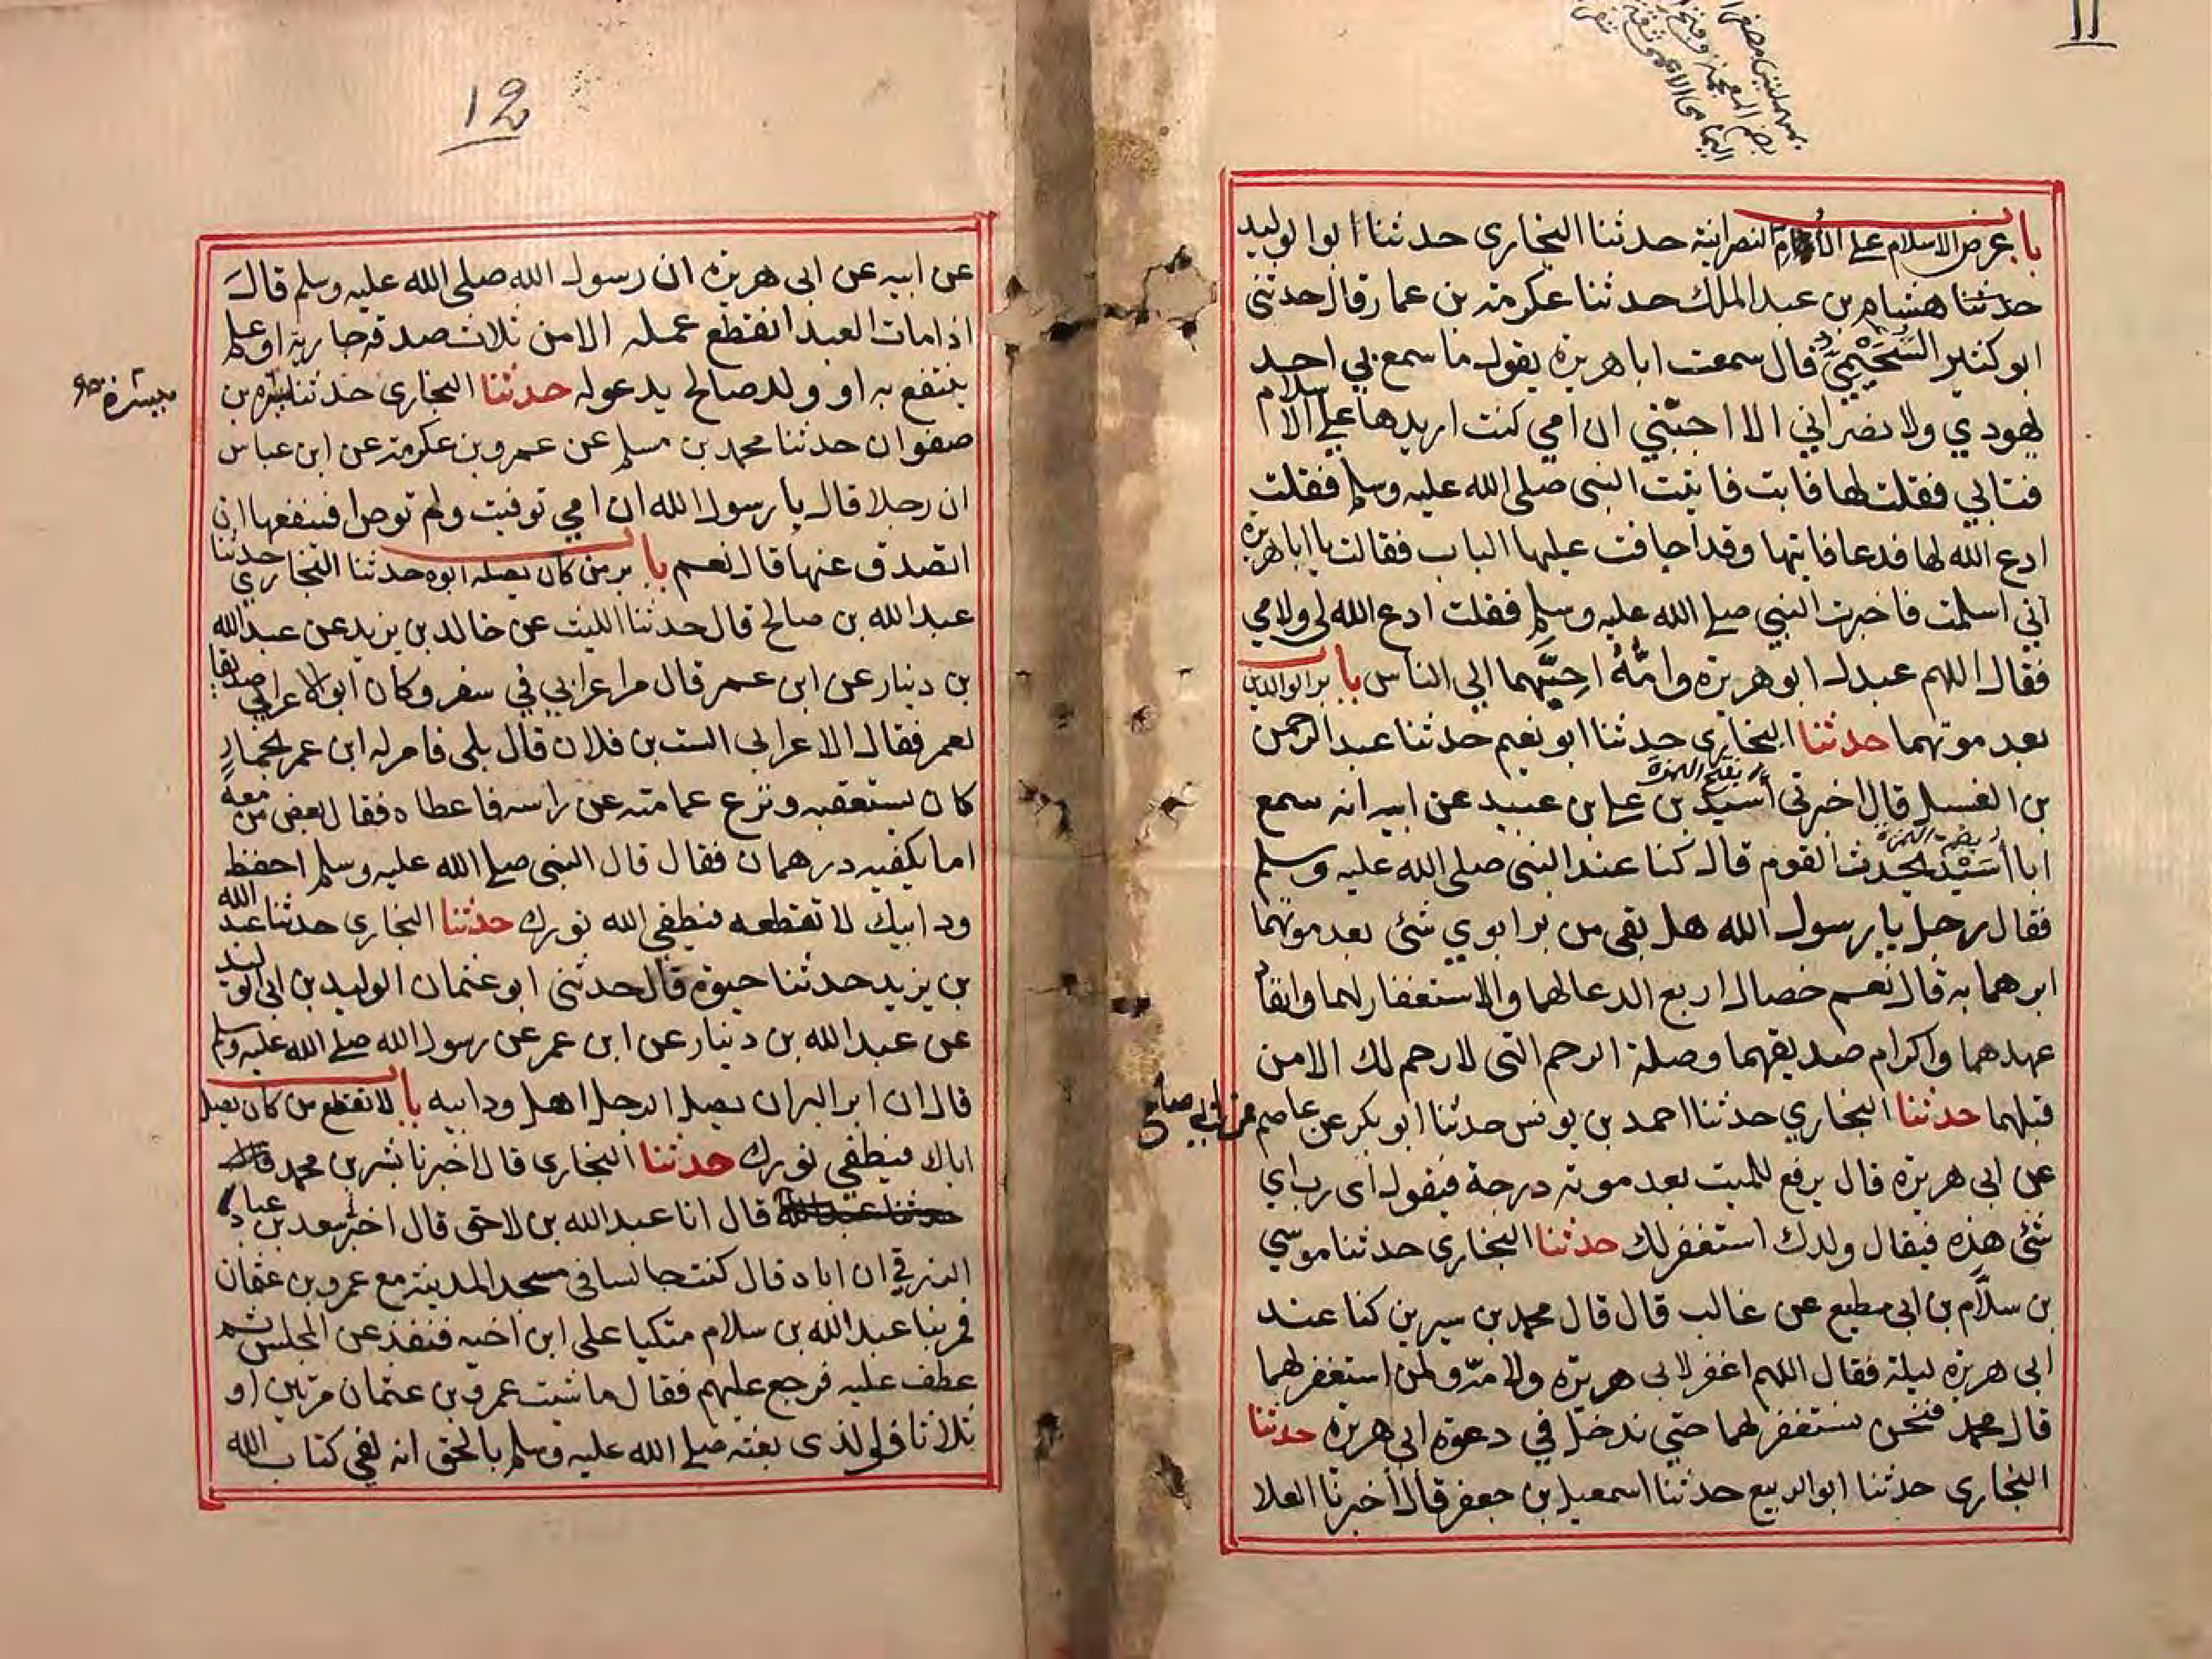 11
باب عرض الاسلام على الأم النصرانية حدثنا البخارى حدثنا ابو الوليد
حدثنا هشام بن عبد الملك حدثنا عكرمة بن عمار قال حدثنى
ابو كثير السُّحَيْمِيّ قال سمعت ابا هريرة يقول ما سمع بي احد
يهودي ولا نصراني الا احبّني ان امي كنت اريدها على الاسلام
فتابي فقلت لها فابت فاتيت النبى صلى الله عليه وسلم فقلت
ادع الله لها فدعا فاتيتها وقد اجافت عليها الباب فقالت يا ابا هريرة
اني اسلمت فاخبرت النبي صلى الله عليه وسلم فقلت ادع الله لى ولامي
فقال اللهم عبدك ابو هريرة وامُّهُ احِبَّهما الي الناس باب بر الوالدين
بعد موتهما حدثنا البخارى حدثنا ابو نعيم حدثنا عبد الرحمن
بن الغسيل قال اخبرنى أسيد بن على بن عبيد عن ابيه انه سمع
بفتح الهمزة
ابا أسَيْد يحدث القوم قال كنا عند النبى صلى الله عليه وسلم
بضم الهمزة
فقال رجل يا رسول الله هل بقى من بر ابوي شئ بعد موتهما
ابرهما به قال نعم خصال اربع الدعا لهما والاستغفار لهما وانفاذ
عهدهما واكرام صديقهما وصلة الرحم التى لا رحم لك الا من
قبلهما حدثنا البخاري حدثنا احمد بن يونس حدثنا ابو بكر عن عاصم عن ابي صالح
عن ابى هريرة قال يرفع للميت بعد موته درجة فيقول اى رب اي
شئ هذه فيقال ولدك استغفر لك حدثنا البخارى حدثنا موسي
بن سلّام بن ابى مطيع عن غالب قال قال محمد بن سيرين كنا عند
ابى هريرة ليلة فقال اللهم اغفر لابى هريرة ولامّه ولمن استغفر لهما
قال محمد فنحن نستغفر لهما حتي ندخل في دعوة ابى هريرة حدثنا
البخارى حدثنا ابو الربيع حدثنا اسمعيل بن جعفر قال اخبرنا العلا
12
عن ابيه عن ابى هريرة ان رسول الله صلى الله عليه وسلم قال
اذا مات العبد انقطع عمله الا من ثلاث صدقة جارية او علم
ينتفع به او ولد صالح يدعو له حدثنا البخارى حدثنا يسرة بن
صفوان حدثنا محمد بن مسلم عن عمرو بن عكرمة عن ابن عباس
ان رجلا قال يا رسول الله ان امي توفيت ولم توص افينفعها ان
اتصدق عنها قال نعم باب بر من كان يصله ابوه حدثنا البخاري حدثنا
عبد الله بن صالح قال حدثنا الليث عن خالد بن يزيد عن عبد الله
بن دينار عن ابن عمر قال مر اعرابي في سفر وكان ابو الاعرابي صديقا
لعمر فقال الاعرابى الست بن فلان قال بلى فامر له ابن عمر بحمار
كان يستعقبه ونزع عمامته عن راسه فاعطاه فقال بعض من معه
اما يكفيه درهمان فقال قال النبى صلى الله عليه وسلم احفظ
ود ابيك لا تقطعه فيطفي الله نورك حدثنا البخارى حدثنا عبد الله
بن يزيد حدثنا حيوة قال حدثنى ابو عثمان الوليد بن ابى الوليد
عن عبد الله بن دينار عن ابن عمر عن رسول الله صلى الله عليه وسلم
قال ان ابر البر ان يصل الرجل اهل ود ابيه باب لا تقطع من كان يصل
اباك فيطفي نورك حدثنا البخارى قال اخبرنا بشر بن محمد
قال انا عبد الله بن لاحق قال اخبر سعد بن عباد
الزرقي ان اباه قال كنت جالسا في مسجد المدينة مع عمرو بن عثمان
فمر بنا عبد الله بن سلام متكيا على ابن اخيه فنفذ عن المجلس ثم
عطف عليه فرجع عليهم فقال ما شيت عمرو بن عثمان مرتين او
ثلاثا فو الذى بعثه صلى الله عليه وسلم بالحق انه لفي كتاب الله